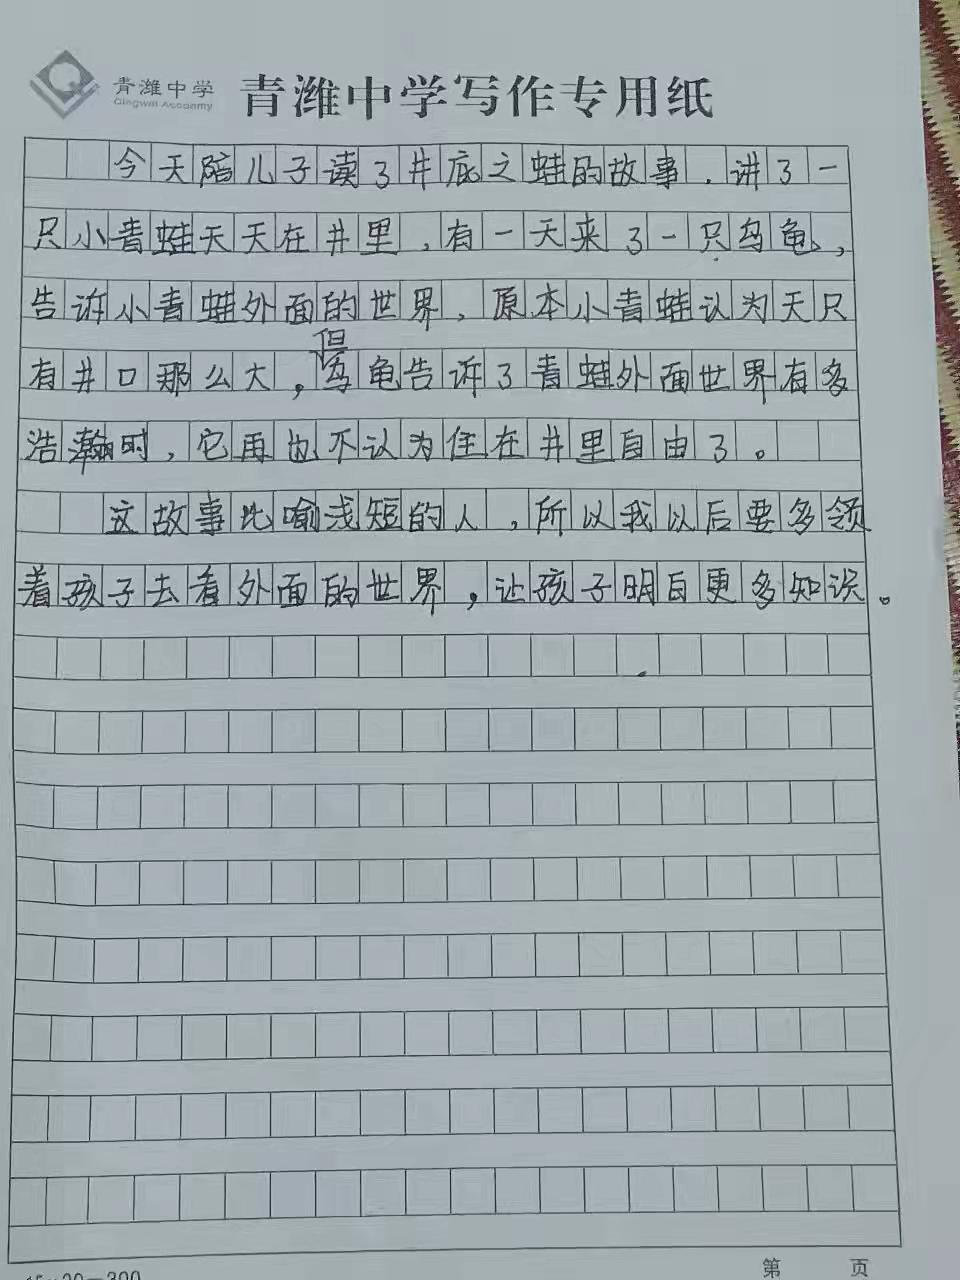 青潍中学
Qingwei Academy
青潍中学写作专用纸
今天陪儿子读了井底之蛙的故事.讲了一
只小青蛙天天在井里,有一天来了一只乌龟,
告诉小青蛙外面的世界,原本小青蛙认为天只
有井口那么大,但乌龟告诉了青蛙外面世界有多
浩瀚时,它再也不认为住在井里自由了。
这故事比喻浅短的人,所以我以后要多领
着孩子去看外面的世界,让孩子明白更多知识。
15×20=300
第 页